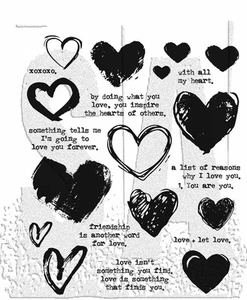 xoxoxo,
with all
my heart.
by doing what you
love, you inspire
the hearts of others.
something tells me
I'm going to
love you forever.
a list of reasons
why I love you,
1. You are you.
friendship
is another word
for love.
love + let love.
love isn't
something you find.
love is something
that finds you.